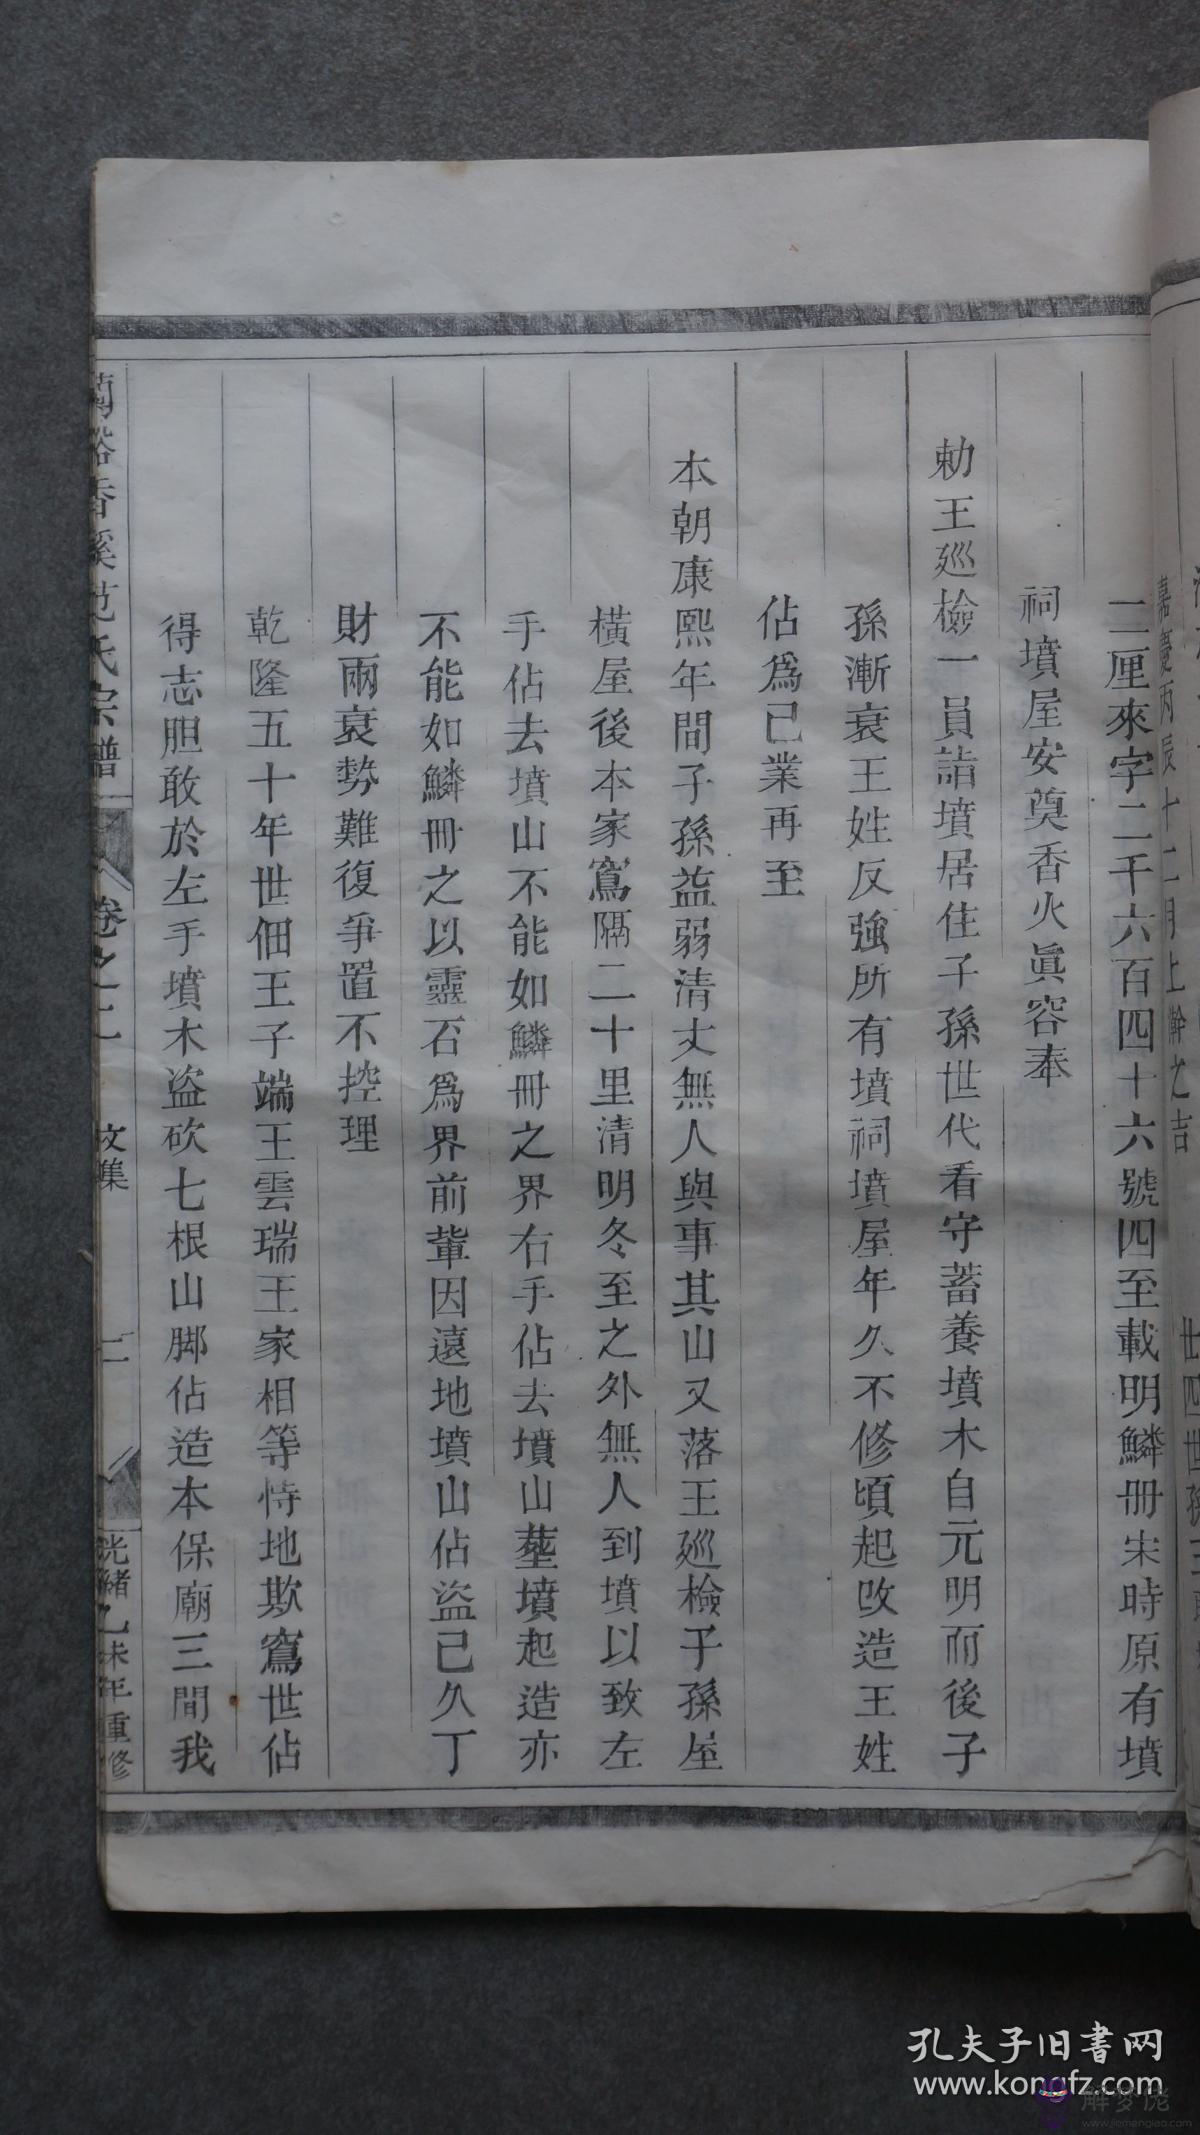 嘉慶丙辰十二月上澣之吉
廿四世孫
二厘來字二千六百四十六號四至載明鱗冊宋時原有墳
祠墳屋安奠香火眞容奉
勅王廵檢一員詣墳居住子孫世代看守蓄養墳木自元明而後子
孫漸衰王姓反強所有墳祠墳屋年久不修頃起改造王姓
佔爲己業再至
本朝康熙年間子孫益弱清丈無人與事其山又落王廵檢子孫屋
橫屋後本家窵隔二十里清明冬至之外無人到墳以致左
手佔去墳山不能如鱗冊之界右手佔去墳山塟墳起造亦
不能如鱗冊之以靈石爲界前輩因遠地墳山佔盜已久丁
財兩衰勢難復爭置不控理
乾隆五十年世佃王子端王雲瑞王家相等恃地欺窵世佔
得志胆敢於左手墳木盜砍七根山脚佔造本保廟三間我
蘭谿香溪范氏宗譜
卷之二
文集
二
光緒乙未年重修
孔夫子旧书网
www.kongfz.com
解梦佬
www.jiemenglao.com